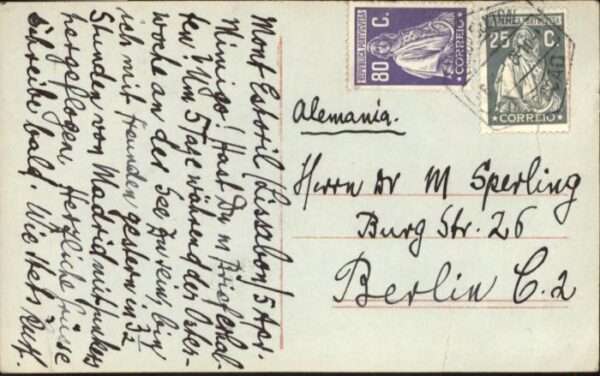 Mont Estoril (Lissabon) 5 Apr.
Winigo! Hast Du m. Brief erhal-
ten? Um 5 Tage während der Oster-
woche an der See zu sein, bin
ich mit Freunden gestern in 3½
Stunden von Madrid mit
hergeflogen. Herzliche Grüsse
Schreibe bald. Wie stets
REPUBLICA PORTUGUESA
80 C.
CORREIO
25 C.
CORREIO
Alemania.
Herrn Dr M Sperling
Burg Str. 26
Berlin C.2